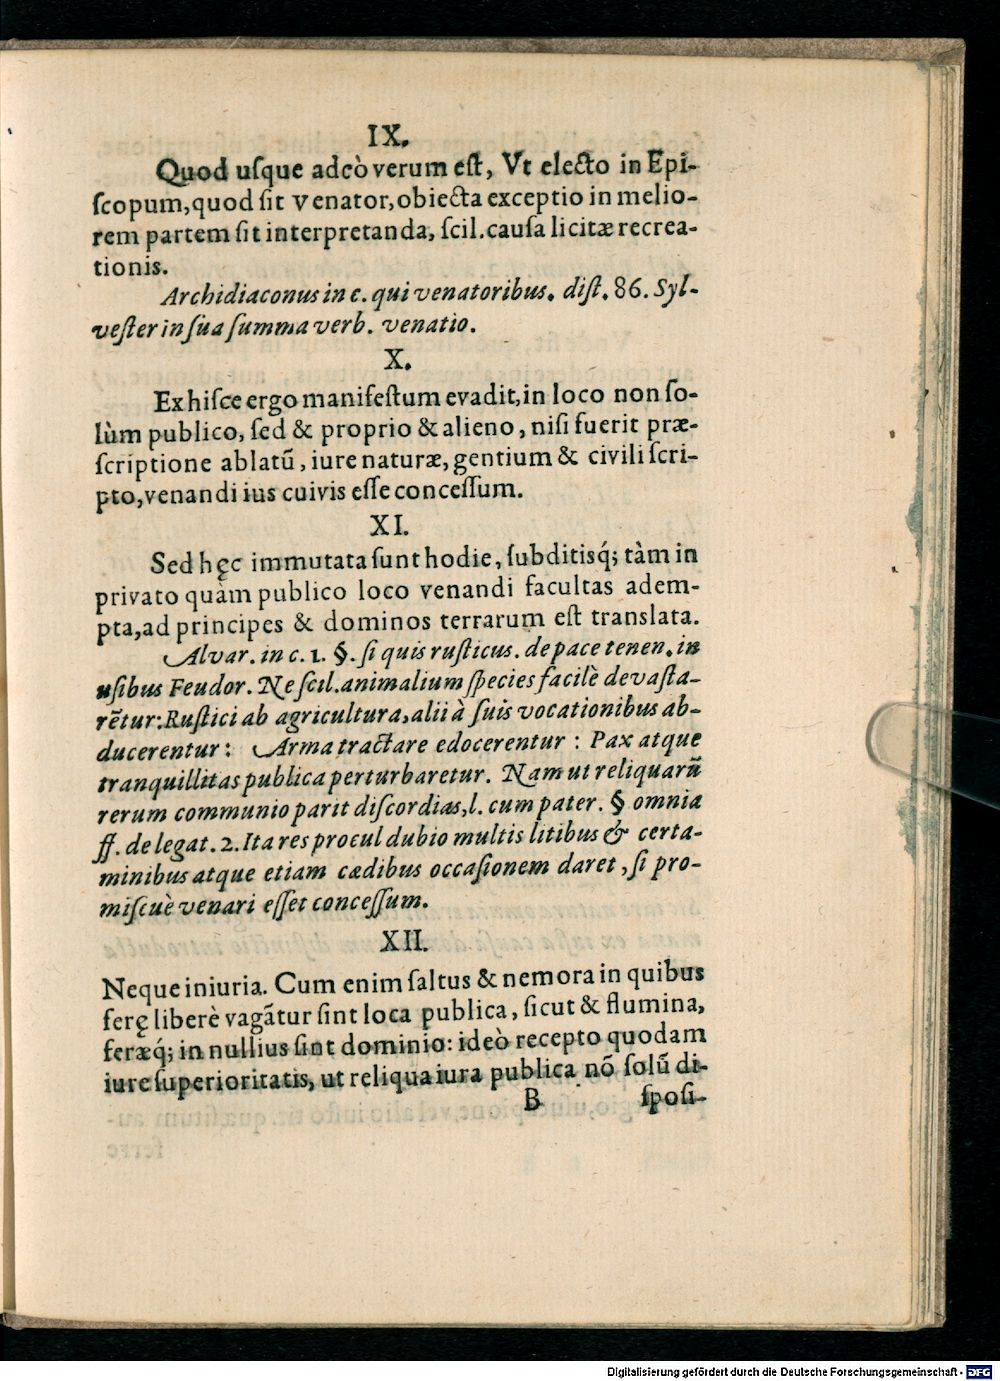 IX.
Quod uſque adeò verum eſt, Vt electo in Epi-
ſcopum, quod ſit venator, obiecta exceptio in melio-
rem partem ſit interpretanda, ſcil. cauſa licitæ recrea-
tionis.
Archidiaconus in c. qui venatoribus. diſt. 86. Syl-
veſter in ſua ſumma verb. venatio.
X.
Ex hiſce ergo manifeſtum evadit, in loco non ſo-
lùm publico, ſed & proprio & alieno, niſi fuerit præ-
ſcriptione ablatũ, iure naturæ, gentium & civili ſcri-
pto, venandi ius cuivis eſſe conceſſum.
XI.
Sed hęc immutata ſunt hodie, ſubditisq́; tàm in
privato quàm publico loco venandi facultas adem-
pta, ad principes & dominos terrarum eſt translata.
Alvar. in c. 1. §. ſi quis ruſticus. de pace tenen. in
uſibus Feudor. Ne ſcil. animalium ſpecies facilè devaſta-
rẽtur: Ruſtici ab agricultura, alii à ſuis vocationibus ab-
ducerentur: Arma tractare edocerentur: Pax atque
tranquillitas publica perturbaretur. Nam ut reliquarũ
rerum communio parit diſcordias, l. cum pater. § omnia
ff. de legat. 2. Ita res procul dubio multis litibus & certa-
minibus atque etiam cædibus occaſionem daret, ſi pro-
miſcuè venari eſſet conceſſum.
XII.
Neque iniuria. Cum enim ſaltus & nemora in quibus
ferę liberè vagãtur ſint loca publica, ſicut & flumina,
feræq́; in nullius ſint dominio: ideò recepto quodam
iure ſuperioritatis, ut reliqua iura publica nõ ſolũ di-
B ſpoſi-
Digitalisierung gefördert durch die Deutsche Forschungsgemeinschaft - DFG